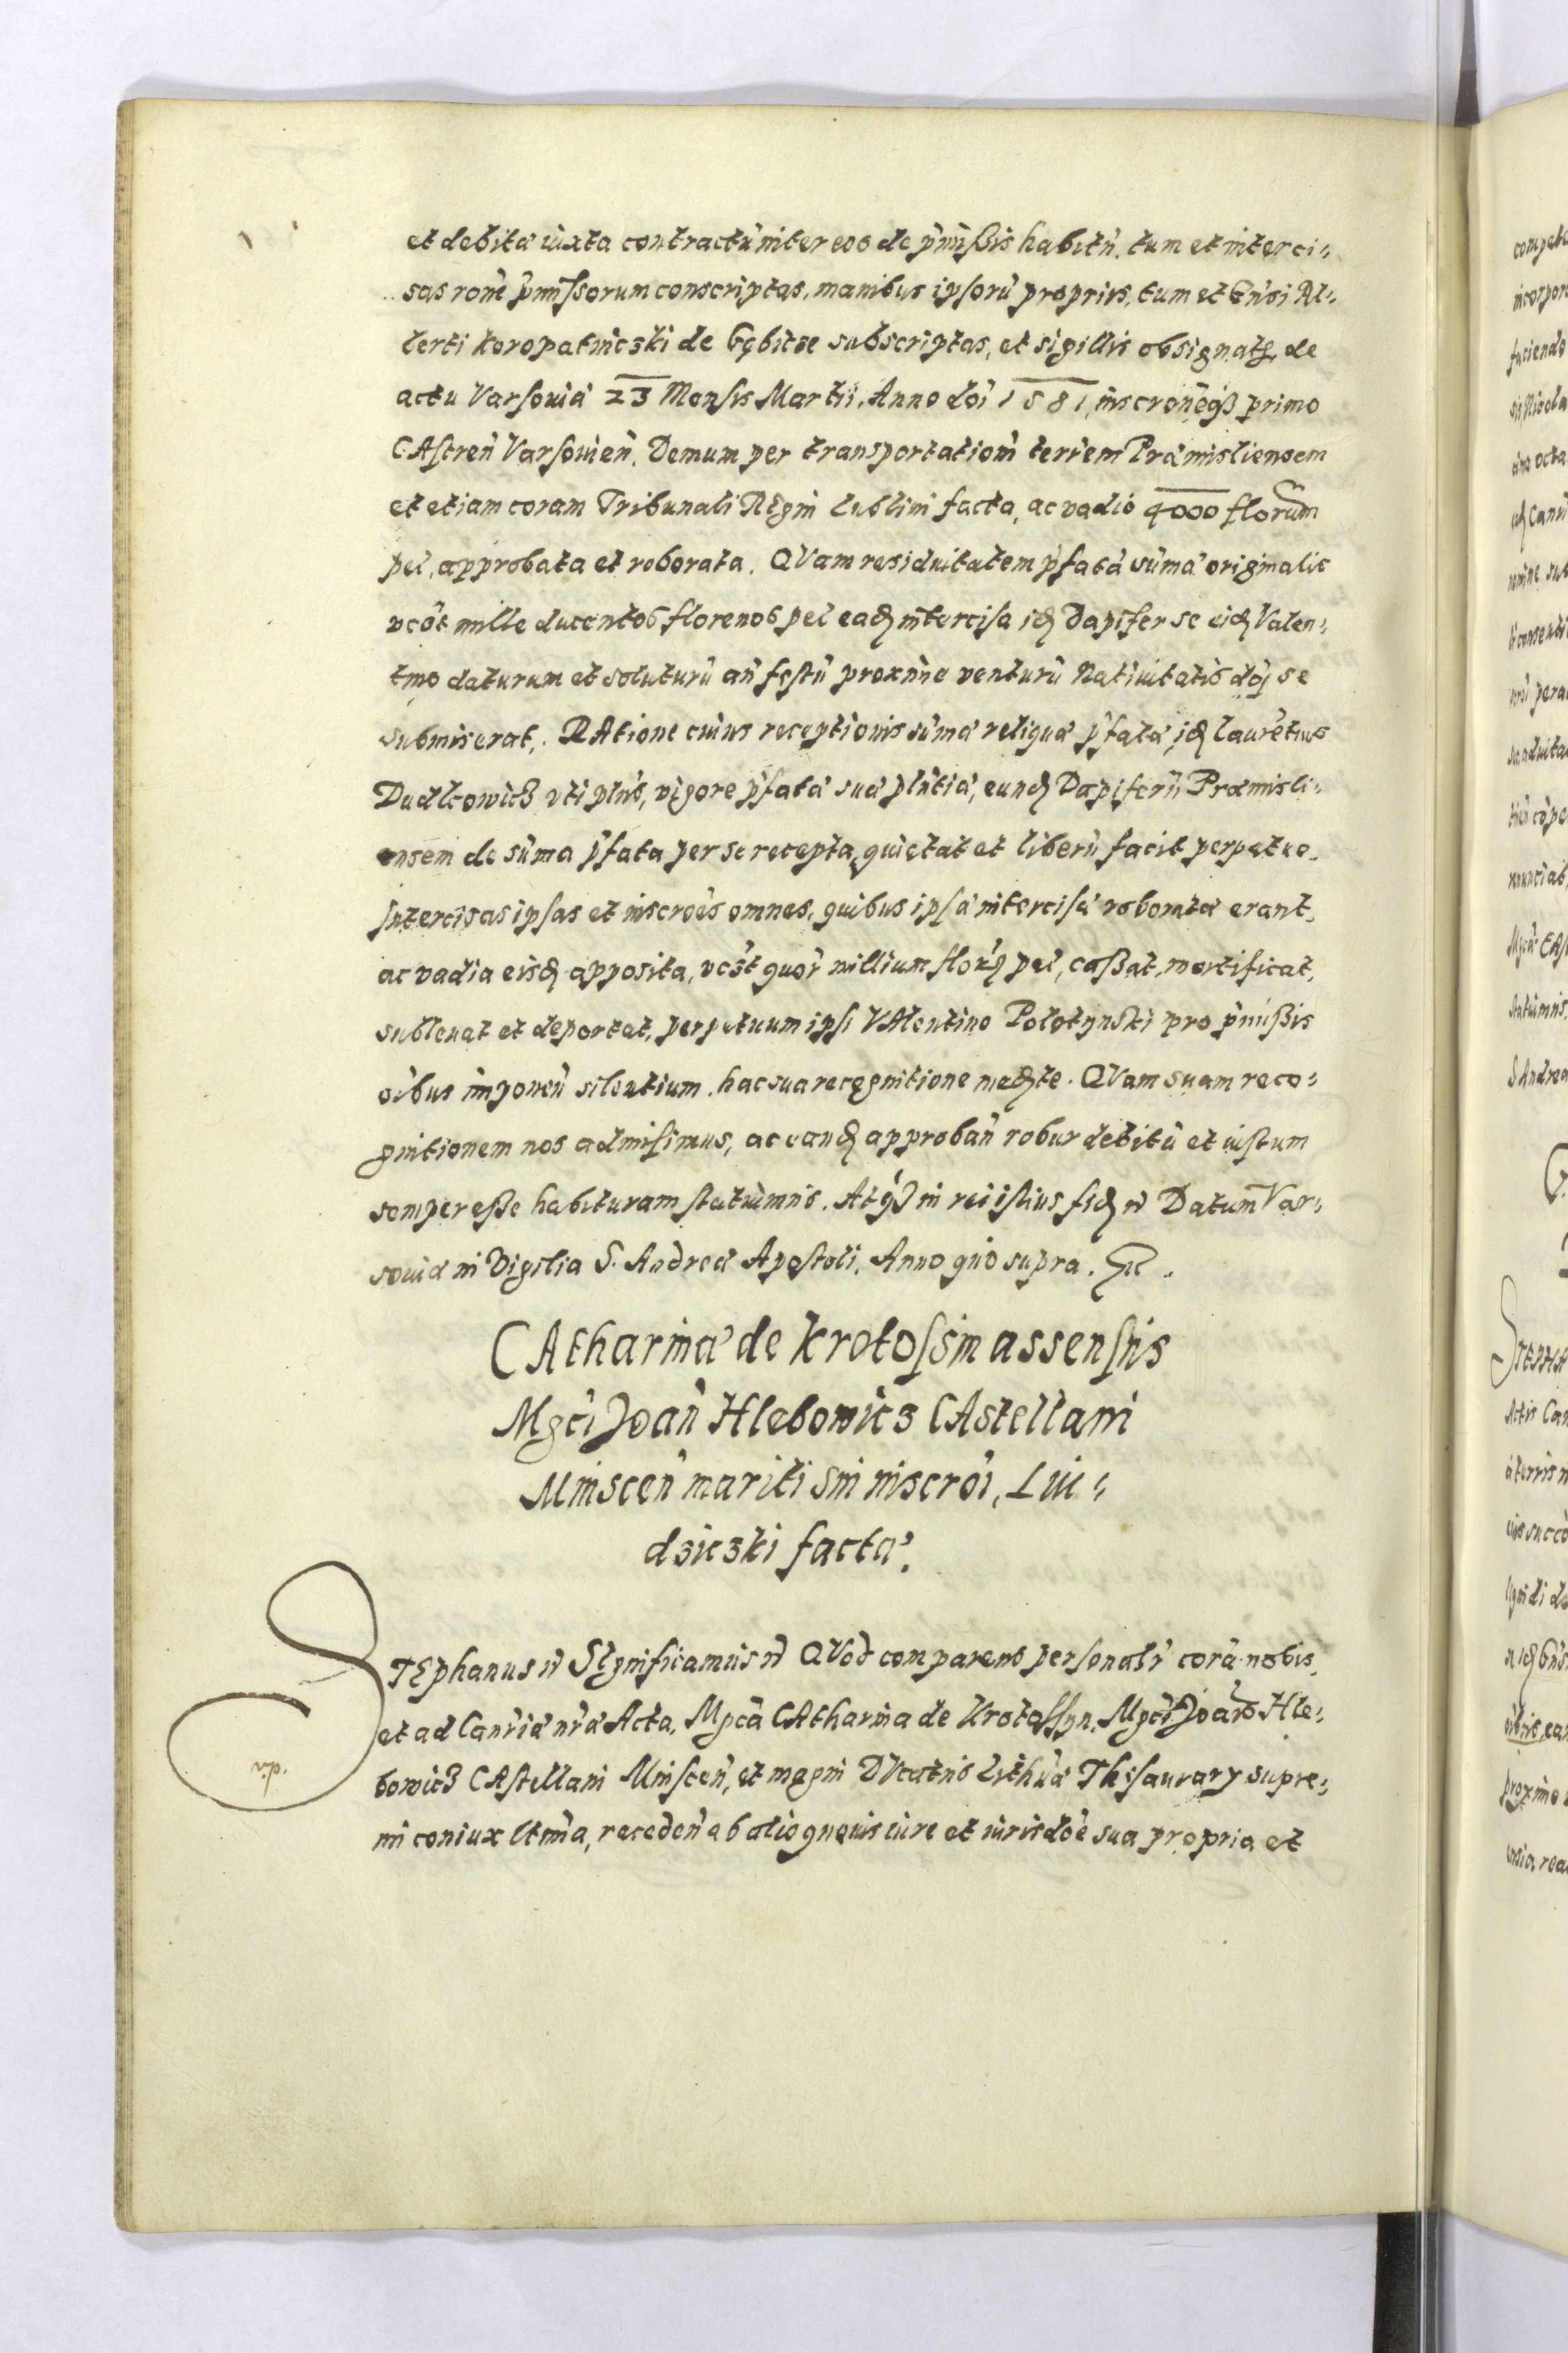 et debitæ iuxta contractũ inter eos de p̃mißis habitũ, tum et interci⸗
sas rõne p̃missorum conscriptas, manibus ipsorũ proprijs, tum et Gñosi Al⸗
berti Koropatniczki de Gębicze subscriptas, et sigillis obsignatas, de
actu Varsouiæ 23 Mensis Martii, Anno dõi 1581, inscrõneq₃ primo
CAstreñ Varsouieñ. Demum per transportationẽ terrẽm Præmisliensem
et etiam coram Tribunali Regni Lublini facta, ac vadio 4000 florum
pol, approbata et roborata. QVam residuitatem p̃fatæ sũmæ originalis
vcɜt mille ducentos florenos pol eadɜ intercisa idɜ Dapifer se eidɜ Valen⸗
tino daturum et soluturũ añ festũ proxime venturũ Natiuitatis dõj se
submiserat. RAtione cuius receptionis sũmæ reliquæ p̃fatæ, idɜ Laurẽtius
Dudkowicz vti plñs, vigore p̃fatæ suæ plñtiæ, eundɜ Dapiferũ Præmisli⸗
ensem de sũma p̃fata per se recepta, quietat et liberũ facit perpetuo.
Intercisas ipsas et inscrões omnes, quibus ipsæ intercisæ roboratæ erant,
ac vadia eisdɜ apposita, vcɜt quor̃ millium florɜ pol, caßat, mortificat,
subleuat et deportat, perpetuum ipsi VAlentino Polotynski pro p̃mißis
oĩbus imponeñ silentium, hac sua recognitione medɜte. QVam suam reco⸗
gnitionem nos admisimus, ac eandɜ approbañ robur debitũ et iustum
semper eße habituram statuimus. Atq₃ in rei istius fidɜ &c Datum Var⸗
souiæ in Vigilia S. Andreæ Apostoli, Anno quo supra. &c.
CAtharinæ de Krotossin assensus
Mgci Joañ Hlebowicz CAstellani
Minsceñ mariti sui inscrõi, Lui⸗
dziczki factæ.
STEphanus &c SIgnificamus &c QVod comparens personalr̃ corã nobis,
et ad Canr̃iæ nr̃æ Acta, Mgcã CAtharina de Krotossyn, Mgci Joañis Hle⸗
bowicz CAstellani Minsceñ, et magni DVcatus Lithũæ Thesaurary supre⸗
mi coniux ltm̃a, recedeñ ab alio quouis iure et iurisdõe sua propria et